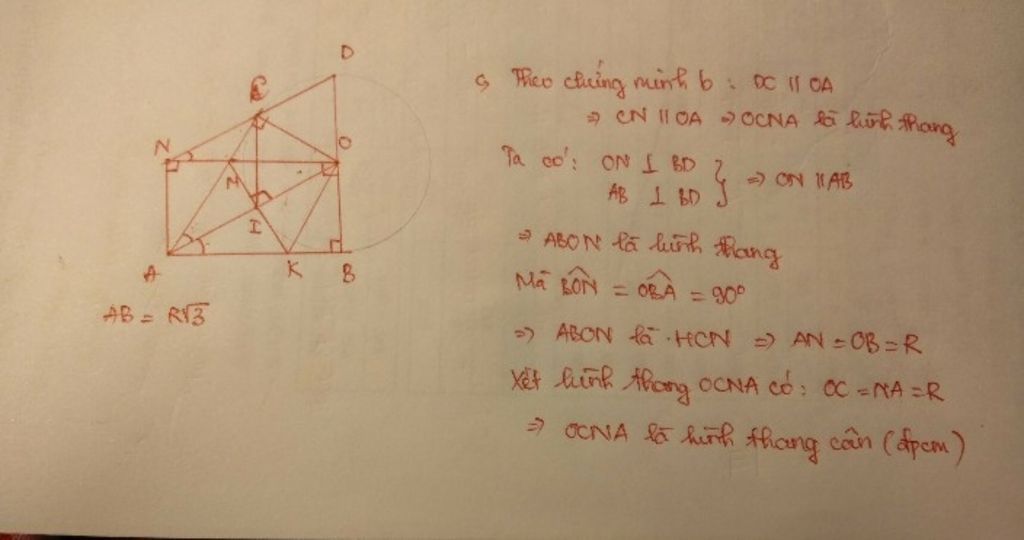 D
C
N
O
M
I
A
K
B
AB = R√3
c, Theo chứng minh b : DC // OA
⇒ CN // OA ⇒ OCNA là hình thang
Ta có: ON ⊥ BD
AB ⊥ BD } ⇒ ON // AB
⇒ ABON là hình thang
Mà BÔN = OB̂A = 90°
⇒ ABON là HCN ⇒ AN = OB = R
Xét hình thang OCNA có: OC = NA = R
⇒ OCNA là hình thang cân (đpcm)